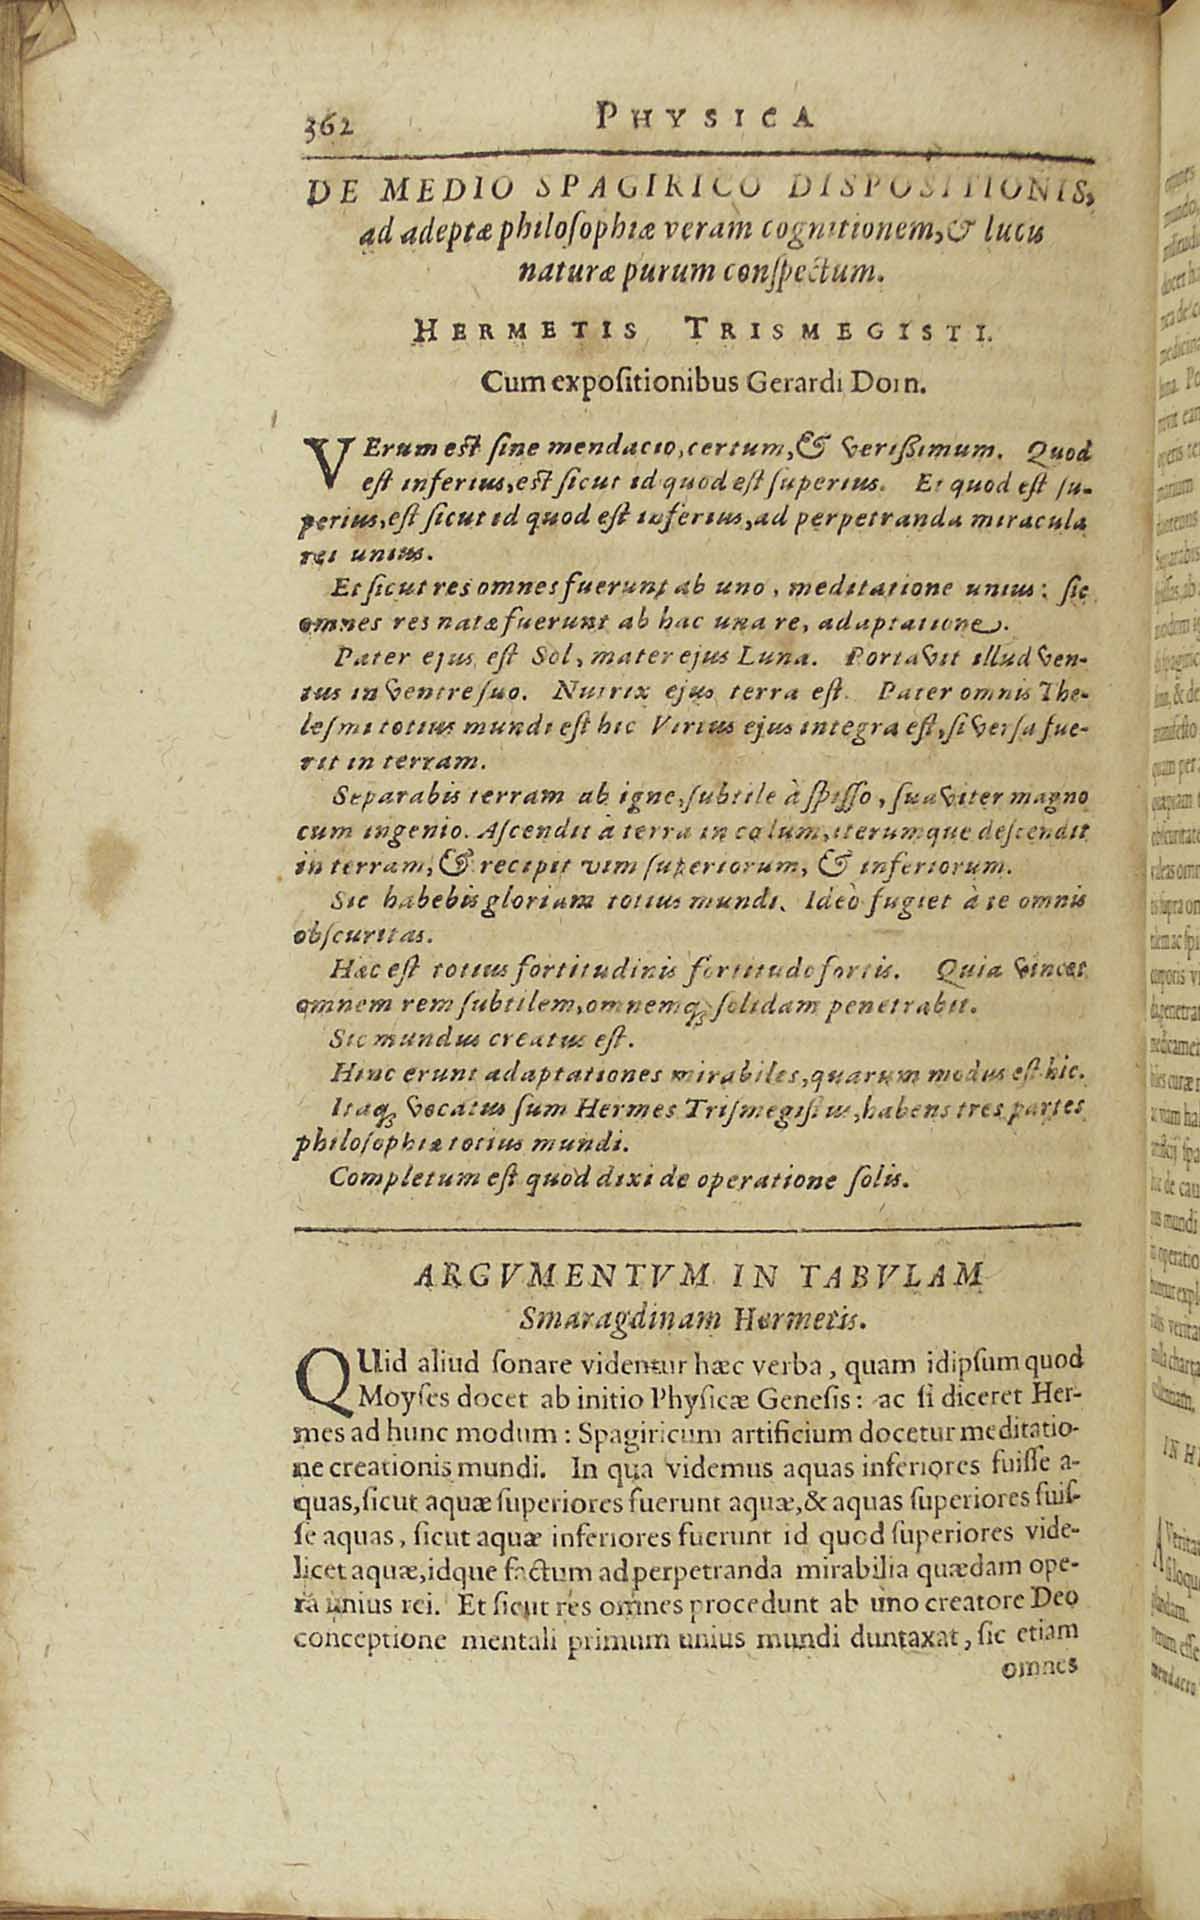 362 PHYSICA
DE MEDIO SPAGIRICO DISPOSITIONIS,
ad adeptæ philoſophiæ veram cognitionem, & lucis
naturæ purum conſpectum.
HERMETIS TRISMEGISTI.
Cum expoſitionibus Gerardi Dorn.
VErum est ſine mendacio, certum, & veriſſimum. Quod
eſt inferius, est ſicut id quod eſt ſuperius. Et quod eſt ſu-
perius, eſt ſicut id quod eſt inferius, ad perpetranda miracula
rei unius.
Et ſicut res omnes fuerunt ab uno, meditatione unius: ſic
omnes res natæ fuerunt ab hac una re, adaptatione.
Pater ejus eſt Sol, mater ejus Luna. Portavit illud ven-
tus in ventre ſuo. Nutrix ejus terra eſt. Pater omnis The-
leſmi totius mundi eſt hic Virtus ejus integra eſt, ſi verſa fue-
rit in terram.
Separabis terram ab igne, ſubtile à ſpiſſo, ſuaviter magno
cum ingenio. Aſcendit à terra in cœlum, iterumque deſcendit
in terram, & recipit vim ſuperiorum, & inferiorum.
Sic habebis gloriam totius mundi. Ideò fugiet à te omnis
obſcuritas.
Hæc eſt totius fortitudinis fortitudo fortis. Quia vincet
omnem rem ſubtilem, omnemq́; ſolidam penetrabit.
Sic mundus creatus eſt.
Hinc erunt adaptationes mirabiles, quarum modus eſt hic.
Itaq́; vocatus ſum Hermes Triſmegiſtus, habens tres partes
philoſophiæ totius mundi.
Completum eſt quod dixi de operatione ſolis.
ARGVMENTVM IN TABVLAM
Smaragdinam Hermetis.
QUid aliud ſonare videntur hæc verba, quam idipſum quod
Moyſes docet ab initio Phyſicæ Geneſis: ac ſi diceret Her-
mes ad hunc modum: Spagiricum artificium docetur meditatio-
ne creationis mundi. In qua videmus aquas inferiores fuiſſe a-
quas, ſicut aquæ ſuperiores fuerunt aquæ, & aquas ſuperiores fuiſ-
ſe aquas, ſicut aquæ inferiores fuerunt id quod ſuperiores vide-
licet aquæ, idque factum ad perpetranda mirabilia quædam ope-
ra unius rei. Et ſicut res omnes procedunt ab uno creatore Deo
conceptione mentali primum unius mundi duntaxat, ſic etiam
omnes